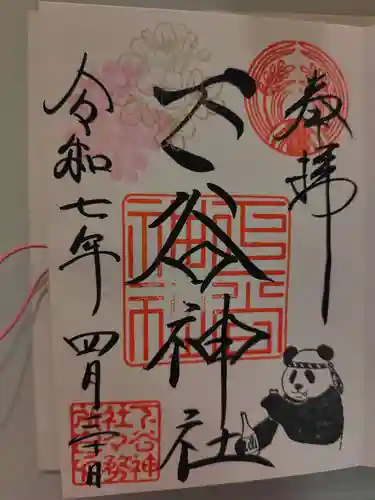 奉拝
下谷神社
令和七年四月日
下谷神社
下谷神
社々務
所之印